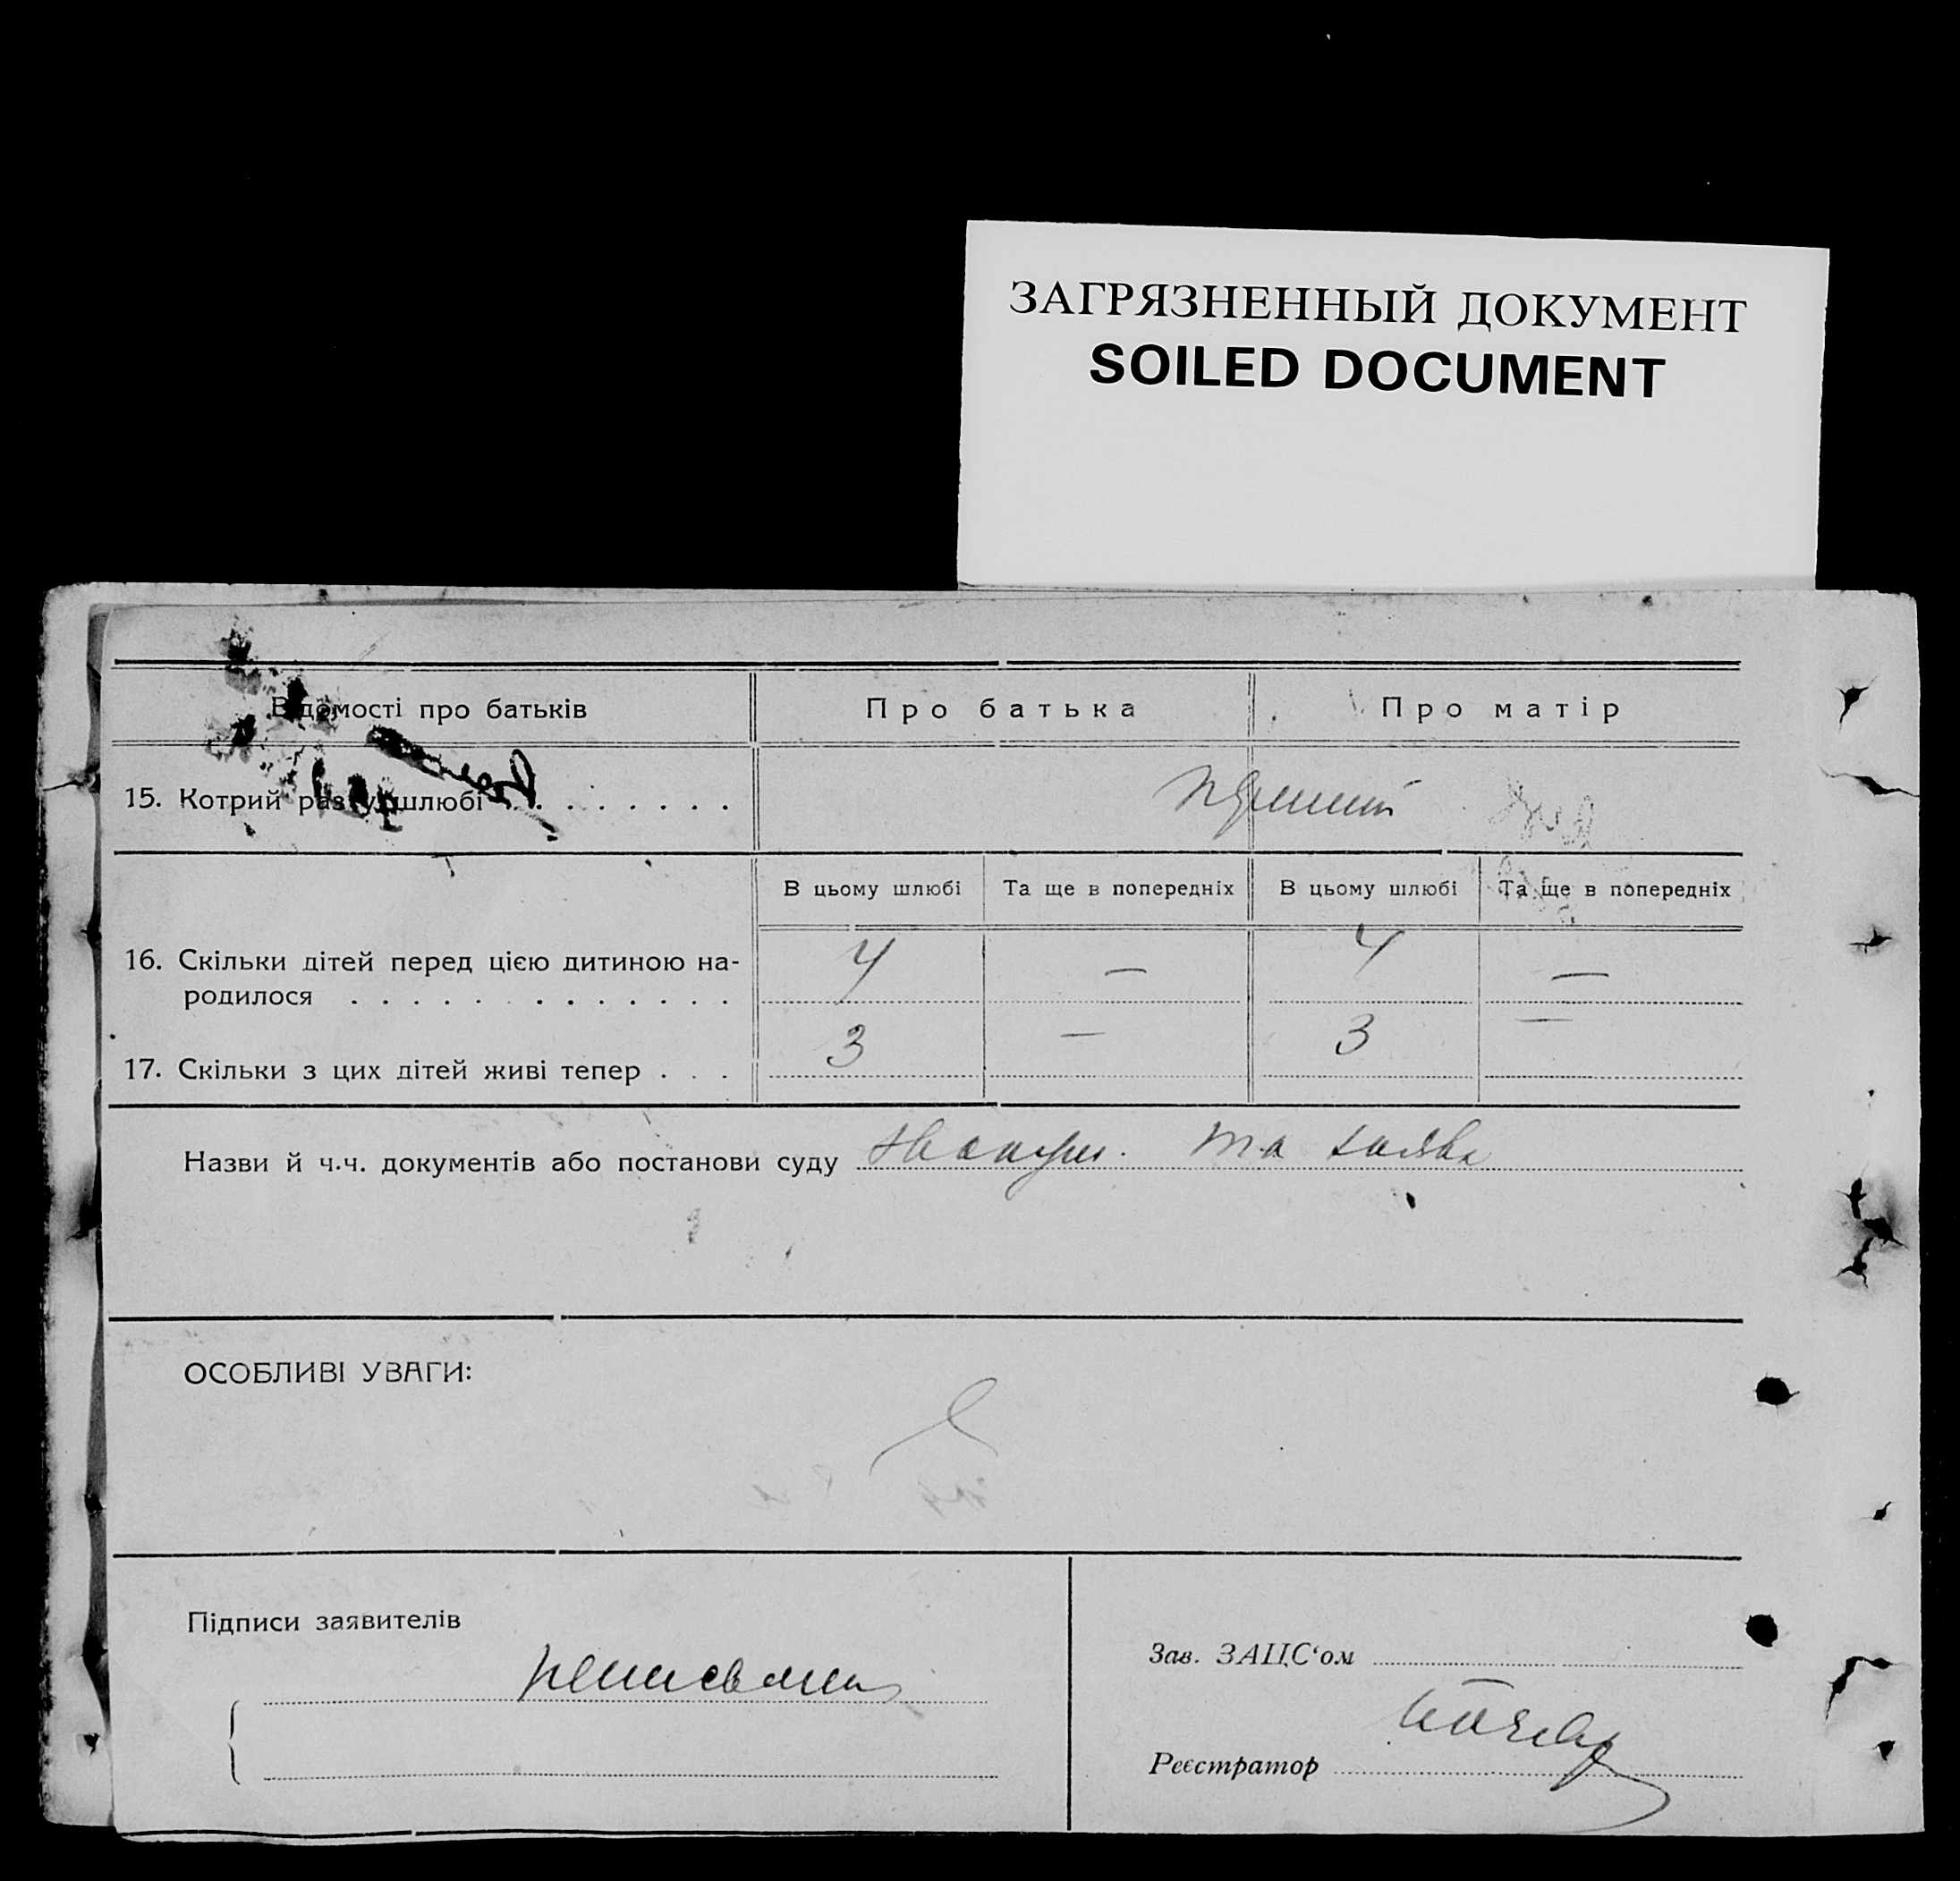 ЗАГРЯЗНЕННЫЙ ДОКУМЕНТ
SOILED DOCUMENT
Відомості про батьків
Про батька
Про матір
15. Котрий раз у шлюбі . . . . . . . .
В цьому шлюбі
Та ще в попередніх
В цьому шлюбі
Та ще в попередніх
16. Скільки дітей перед цією дитиною на-
родилося . . . . . . . . . . . . .
4 — 4 —
17. Скільки з цих дітей живі тепер . . .
3 — 3 —
Назви й ч.ч. документів або постанови суду та заява
ОСОБЛИВІ УВАГИ:
Підписи заявителів
Зав. ЗАЦС‘ом
Реєстратор